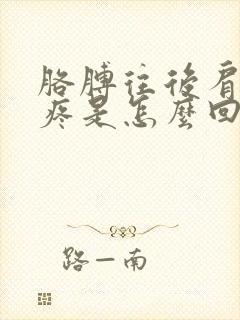 胳膊往後肩
疼是怎麼回
路一南